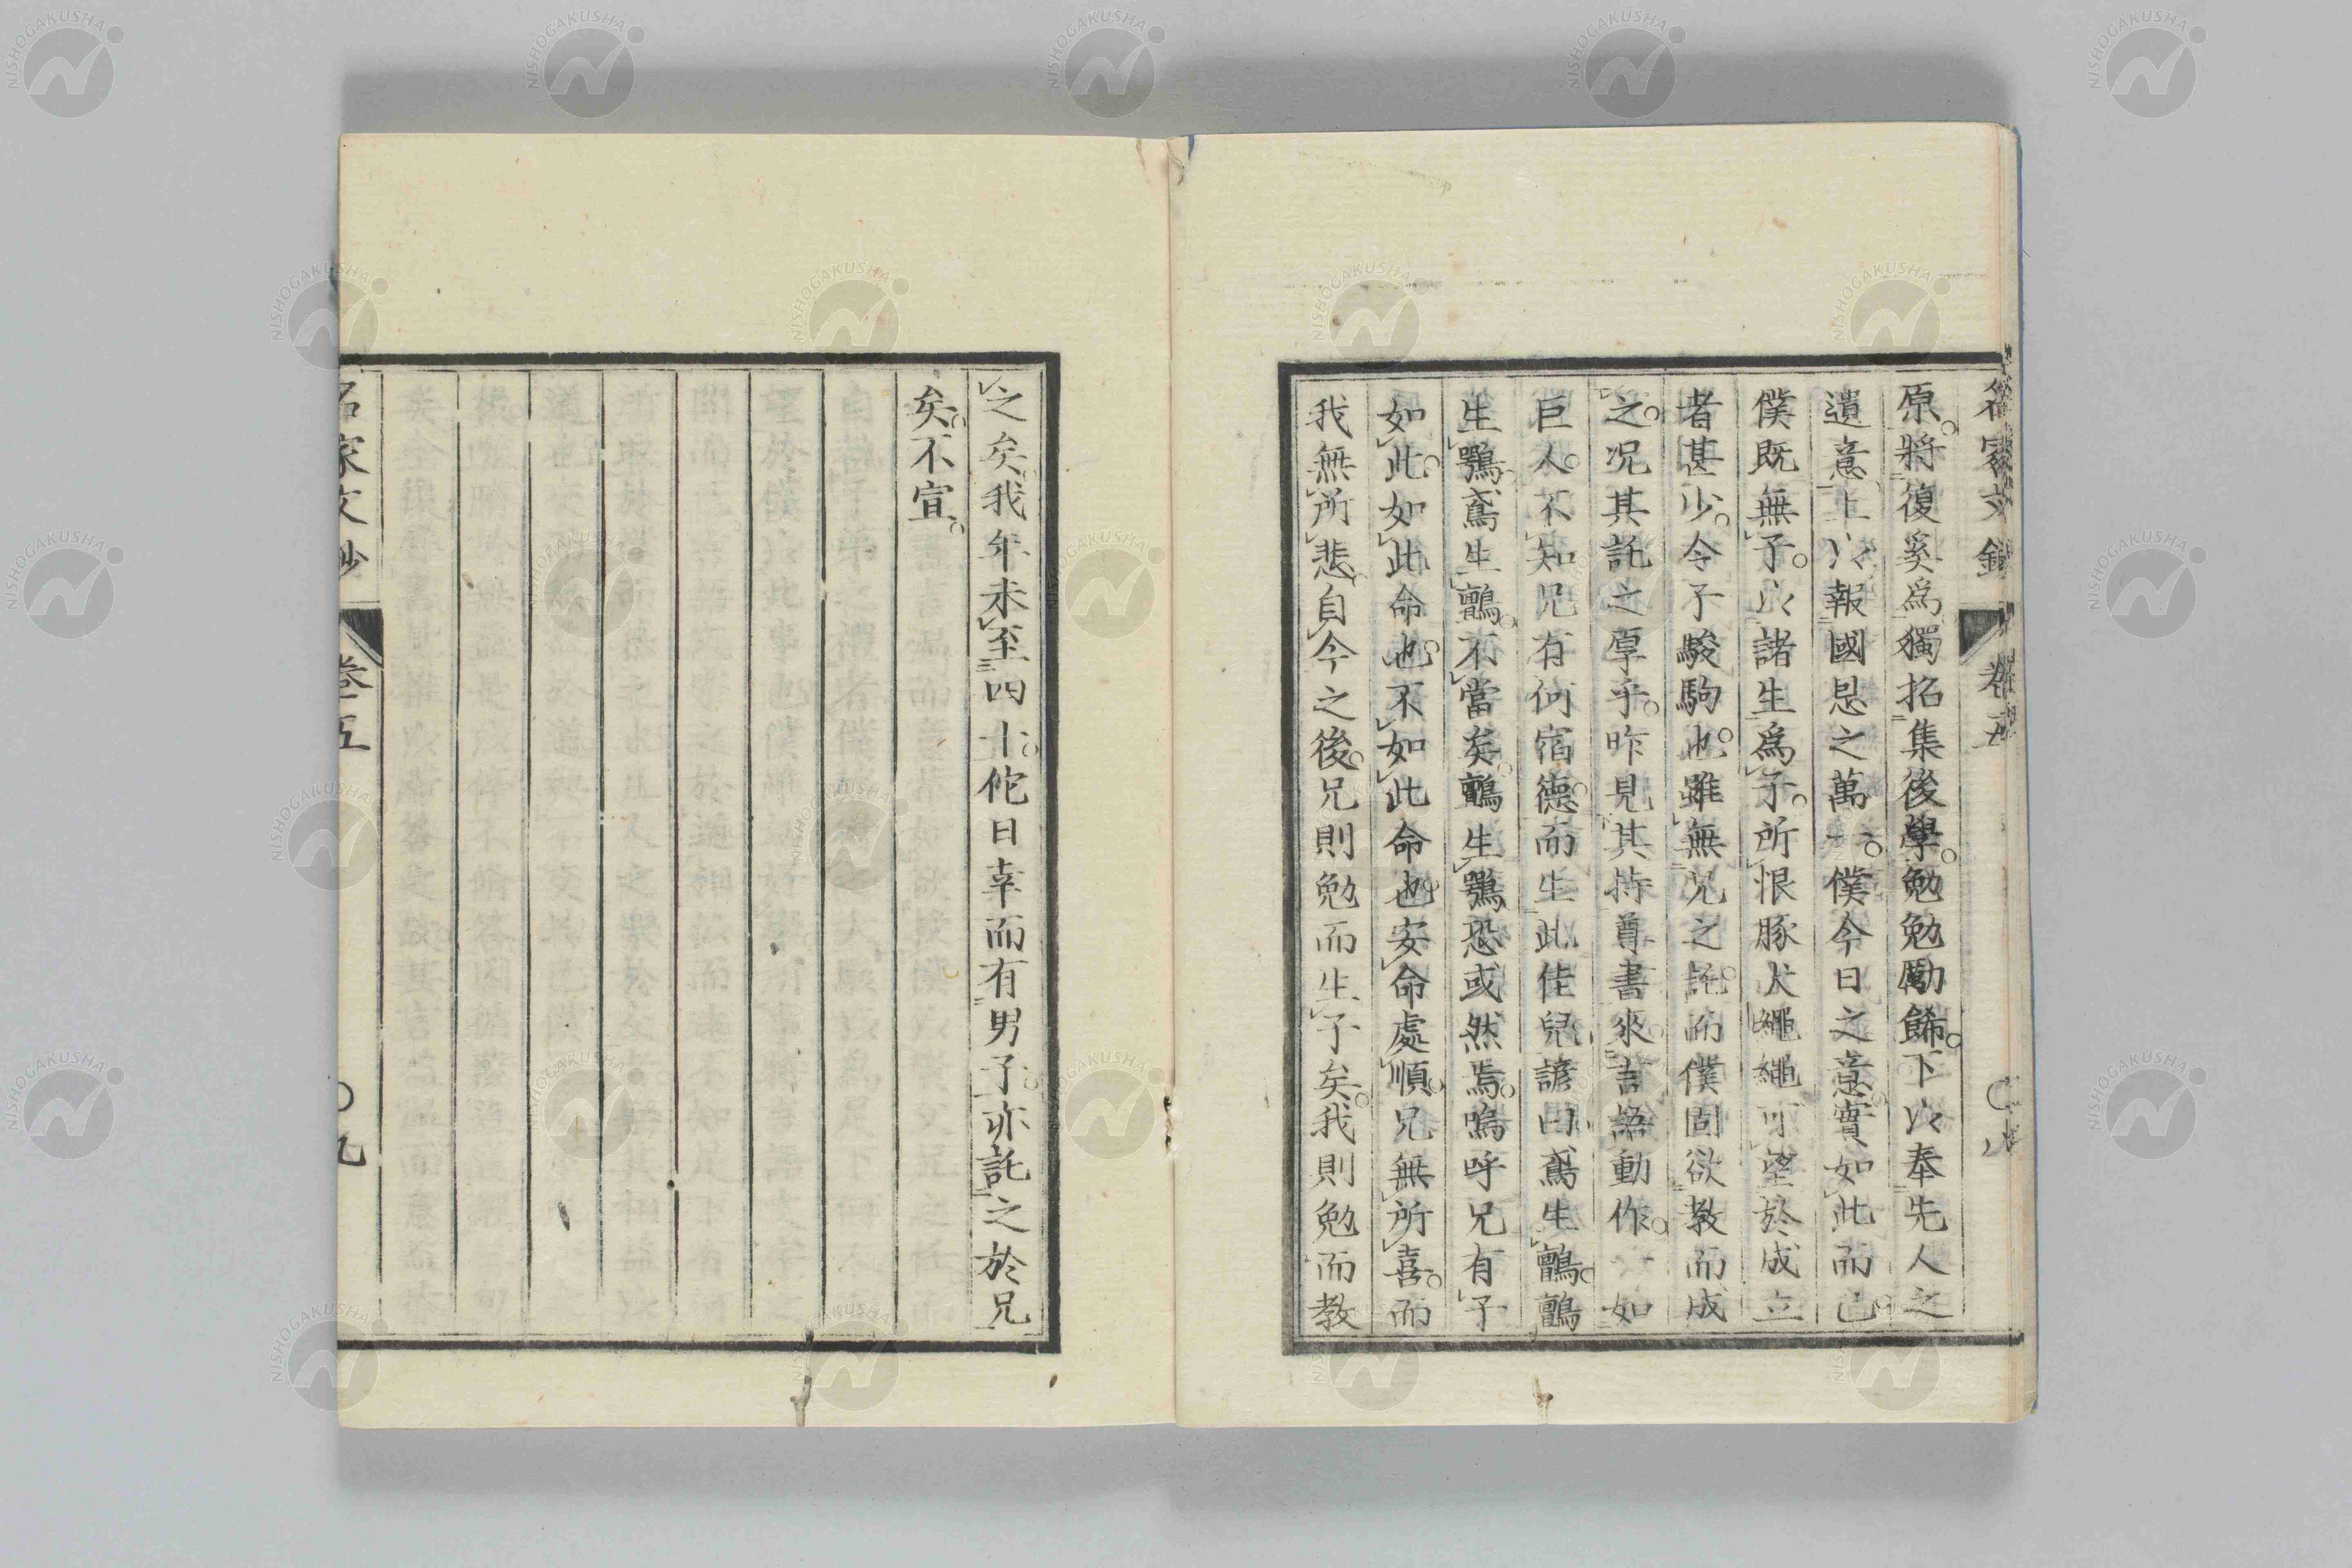 名家文鈔 卷五 〇八
原。將復奚爲。獨招集後學。勉勉勵餙。下以奉先人之
遺意。上以報國恩之萬一。僕今日之意。實如此而已。
僕既無子。以諸生爲子。所恨豚犬繩繩。可望於成立
者甚少。令子駿駒也。雖無兄之託。而僕固欲教而成
之。况其託之厚乎。昨見其持尊書來。吾語動作。一如
巨人。不知兄有何宿德。而生此佳兒。諺曰。鳶生鸇。鸇
生鶚。鳶生鸇。不當矣。鸇生鶚。恐或然焉。嗚呼兄有子
如此。如此命也。不如此命也。安命處順。兄無所喜。而
我無所悲。自今之後。兄則勉而生子矣。我則勉而教
之矣。我年未至四十。佗日幸而有男子。亦託之於兄
矣。不宣。
名家文鈔 卷五 〇九
NISHOGAKUSHA